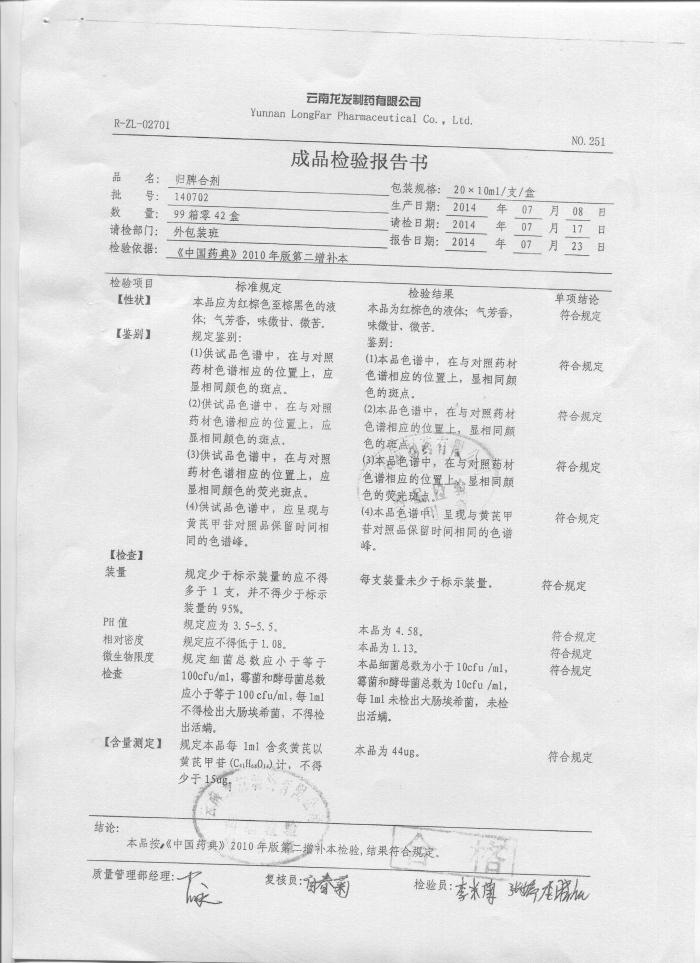 云南龙发制药有限公司
Yunnan LongFar Pharmaceutical Co., Ltd.
R-ZL-02701
NO.251
成品检验报告书
品 名: 归脾合剂 包装规格: 20×10ml/支/盒
批 号: 140702 生产日期: 2014 年 07 月 08 日
数 量: 99箱零42盒 请检日期: 2014 年 07 月 17 日
请检部门: 外包装班 报告日期: 2014 年 07 月 23 日
检验依据: 《中国药典》2010年版第二增补本
检验项目 标准规定 检验结果 单项结论
【性状】 本品应为红棕色至棕黑色的液 本品为红棕色的液体;气芳香, 符合规定
体;气芳香,味微甘、微苦. 味微甘、微苦.
【鉴别】 规定鉴别: 鉴别:
(1)供试品色谱中,在与对照 (1)本品色谱中,在与对照药材 符合规定
药材色谱相应的位置上,应 色谱相应的位置上,显相同颜
显相同颜色的斑点。 色的斑点。
(2)供试品色谱中,在与对照 (2)本品色谱中,在与对照药材 符合规定
药材色谱相应的位置上,应 色谱相应的位置上,显相同颜
显相同颜色的斑点。 色的斑点。
(3)供试品色谱中,在与对照 (3)本品色谱中,在与对照药材 符合规定
药材色谱相应的位置上,应 色谱相应的位置上,显相同颜
显相同颜色的荧光斑点。 色的荧光斑点。
(4)供试品色谱中,应呈现与 (4)本品色谱中,呈现与黄芪甲 符合规定
黄芪甲苷对照品保留时间相 苷对照品保留时间相同的色谱
同的色谱峰。 峰。
【检查】
装量 规定少于标示装量的应不得 每支装量未少于标示装量。 符合规定
多于 1 支,并不得少于标示
装量的 95%。
PH值 规定应为 3.5-5.5。 本品为 4.58。 符合规定
相对密度 规定应不得低于1.08。 本品为 1.13。 符合规定
微生物限度 规定细菌总数应小于等于 本品细菌总数为小于10cfu /ml, 符合规定
检查 100cfu/ml,霉菌和酵母菌总数 霉菌和酵母菌总数为10cfu /ml,
应小于等于100cfu/ml,每1ml 每1ml未检出大肠埃希菌,未检
不得检出大肠埃希菌,不得检 出活螨。
出活螨。
【含量测定】 规定本品每 1ml 含炙黄芪以 本品为 44ug。 符合规定
黄芪甲苷(C₄₁H₆₈O₁₄)计,不得
少于15ug。
结论:
本品按《中国药典》2010年版第二增补本检验,结果符合规定.
合格
质量管理部经理: 复核员: 检验员: